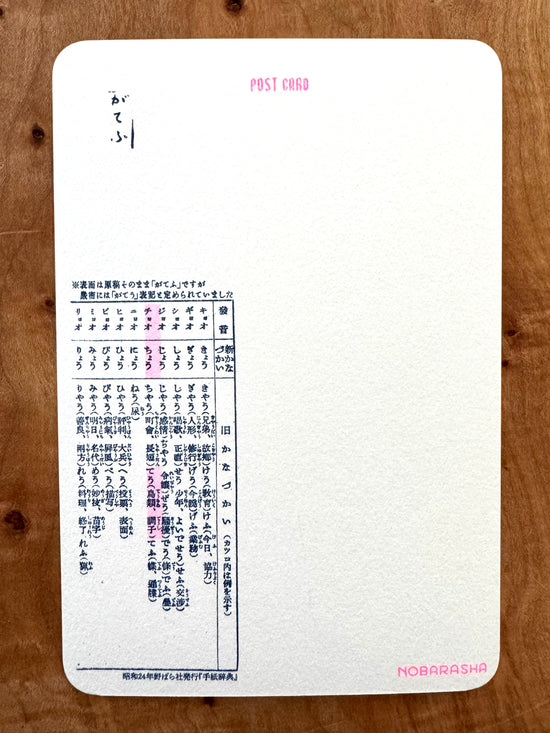 POST CARD
がてふ
※表面は原稿そのまま「がてふ」ですが
厳密には「がてう」表記と定められていました
發音 新かなづかい 旧かなづかい(カツコ内は例を示す)
キョオ きょう きやう(兄弟、故郷)けう(教育)けふ(今日、協力)
ギョオ ぎょう ぎやう(人形、修行)げう(今曉)げふ(業務)
ショオ しょう しやう(唱歌、正直)せう(少年、よいでせう)せふ(交渉)
ジョオ じょう じやう(感情)ぢやう(令嬢)ぜう(騒擾)でう(條)でふ(疊)
チョオ ちょう ちやう(町會、長短)てう(鳥類、調子)てふ(蝶、通牒)
ニョオ にょう ねう(尿)
ヒョオ ひょう ひやう(評判、大兵)へう(投票、表面)
ビョオ びょう びやう(病氣、屏風)べう(描写)
ミョオ みょう みやう(明日、名代)めう(妙技、苗字)
リョオ りょう りやう(善良、兩方)れう(料理、終了)れふ(獵)
昭和24年野ばら社発行『手紙辞典』
NOBARASHA